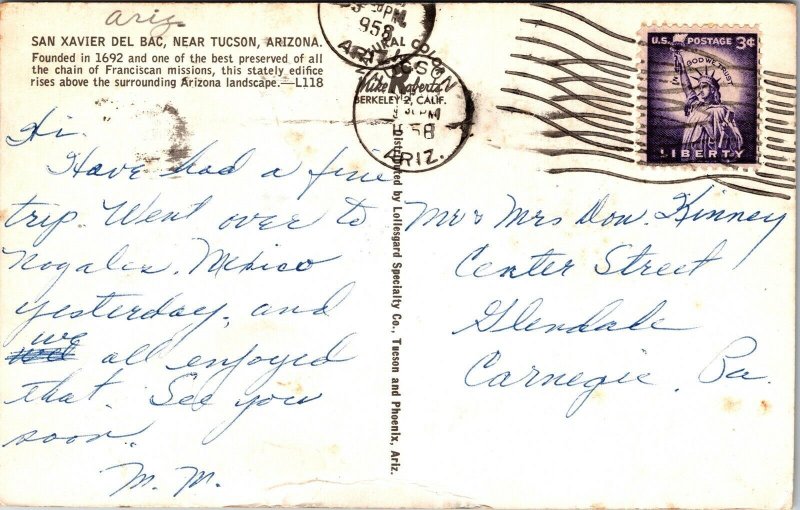 ariz
SAN XAVIER DEL BAC, NEAR TUCSON, ARIZONA.
Founded in 1692 and one of the best preserved of all
the chain of Franciscan missions, this stately edifice
rises above the surrounding Arizona landscape.—L118
Hi.
Have had a fine
trip. Went over to
Nogales, Mexico
yesterday, and
we
all enjoyed
that. See you
soon.
M. M.
PM
1958
ARIZ.
NATURAL COLOR
TUCSON
Mike Roberts
BERKELEY 2, CALIF.
PM
1958
ARIZ.
Distributed by Lollesgard Specialty Co., Tucson and Phoenix, Ariz.
U.S. POSTAGE 3¢
IN GOD WE TRUST
LIBERTY
Mr & Mrs Don. Kinney
Center Street
Glendale
Carnegie, Pa.